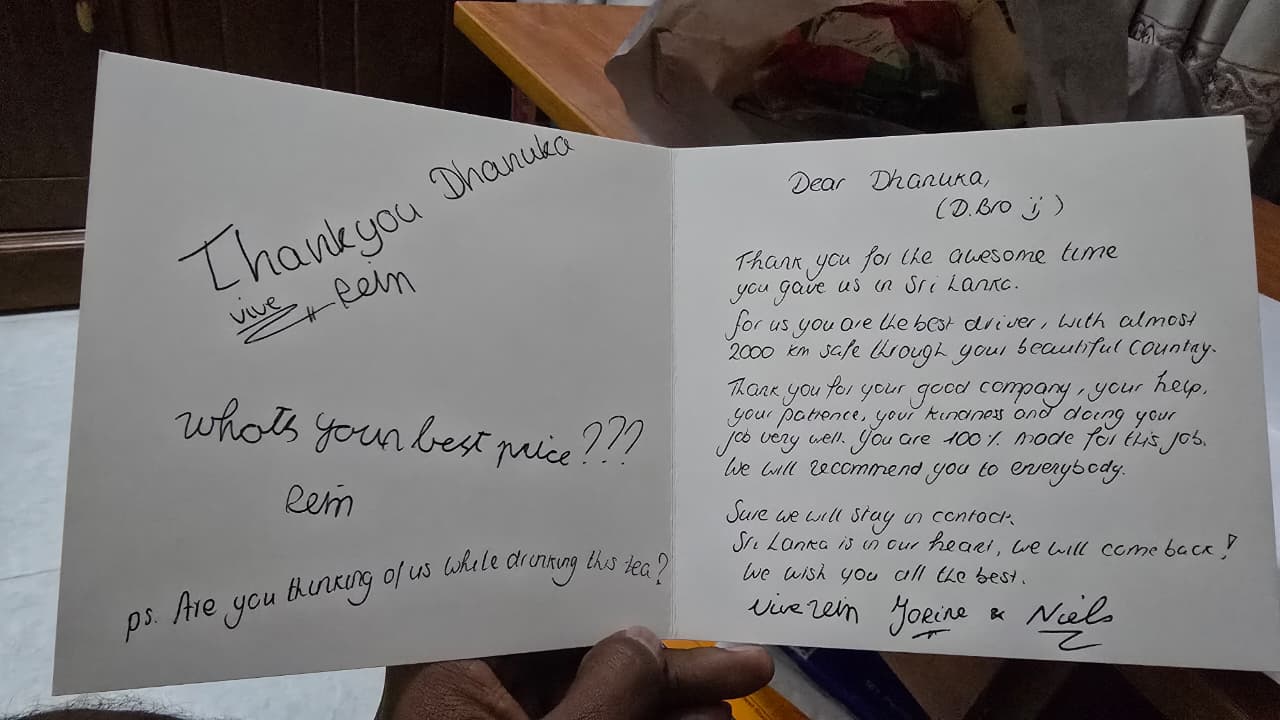 Thankyou Dhanuka
vive Rein
whats your best price???
Rein
ps. Are you thinking of us while drinking this tea?
Dear Dhanuka,
(D.Bro :))
Thank you for the awesome time
you gave us in Sri Lanka.
for us you are the best driver, with almost
2000 km safe through your beautiful country.
Thank you for your good company, your help,
your patience, your kindness and doing your
job very well. You are 100% made for this job.
We will recommend you to everybody.
Sure we will stay in contact.
Sri Lanka is in our heart, we will come back!
We wish you all the best.
vive rein Jorine & Niels